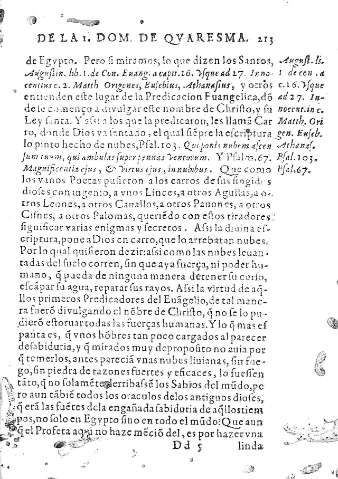 DE LA 1. DOM. DE QVARESMA. 213
de Egypto. Pero si miramos, lo que dizen los Santos,
Augustin. lib. 1. de Con. Euang. a capit. 16. Vsque ad 27. Inno-
centius c. 2. Matth. Origenes, Eusebius, Athanasius, y otros
entienden este lugar de la Predicacion Euangelica, dõ
de se començo a divulgar este nombre de Christo, y su
Ley santa. Y assi a los que la predicaron, les llamã Car
ro, donde Dios va sentado, el qual siẽpre la escriptura
lo pinto hecho de nubes, Psal. 103. Qui ponis nubem ascen
sum tuum, qui ambulas super pennas ventorum. Y Psal. 67.
Magnificatio ejus, & virtus ejus, in nubibus. Que como
los vanos Poetas pusieron a los carros de sus fingidos
dioses con ingenio, a vnos Linces, a otros Aguilas, a o-
tros Leones, a otros Cauallos, a otros Panones, a otros
Cisnes, a otros Palomas, queriẽdo con estos tiradores
significar varias enigmas y secretos. Assi la divina es-
criptura, pone a Dios en carro, que lo arrebatan nubes.
Por lo qual quisieron dezir: assi como las nubes leuan-
tadas del suelo corren, sin que aya fuerça, ni poder hu-
mano, q̃ pueda de ninguna manera detener su corio,
escãpar su agua, reparar sus rayos. Assi la virtud de aq̃-
llos primeros Predicadores del Euãgelio, de tal mane
ra fuerõ divulgando el nõbre de Christo, q̃ no se lo pu
dierõ estoruar todas las fuerças humanas. Y lo q̃ mas es
panta es, q̃ vnos hõbres tan poco cargados al parecer
de sabiduria, y q̃ mirados muy de proposito no auia por
q̃ temerlos, antes pareciã vnas nubes liuianas, sin fue-
go, sin piedra de razones fuertes y eficaces, lo fuessen
tãto, q̃ no solamẽte derribassẽ los Sabios del mũdo, pe
ro aun tãbiẽ todos los oraculos de los antiguos dioses,
q̃ erã las fuẽtes de la engañada sabiduria de aq̃llos tiem
pos, no solo en Egypto sino en todo el mũdo: Que aun
q̃ el Profeta aqui no haze menciõ del, es por hazer vna
Dd 5 linda
August. li.
1. de con. a
c. 16. Vsque
ad 27. In-
nocent. in c.
Matth. Ori
gen. Euseb.
Athanas.
Psal. 103.
Psal. 67.